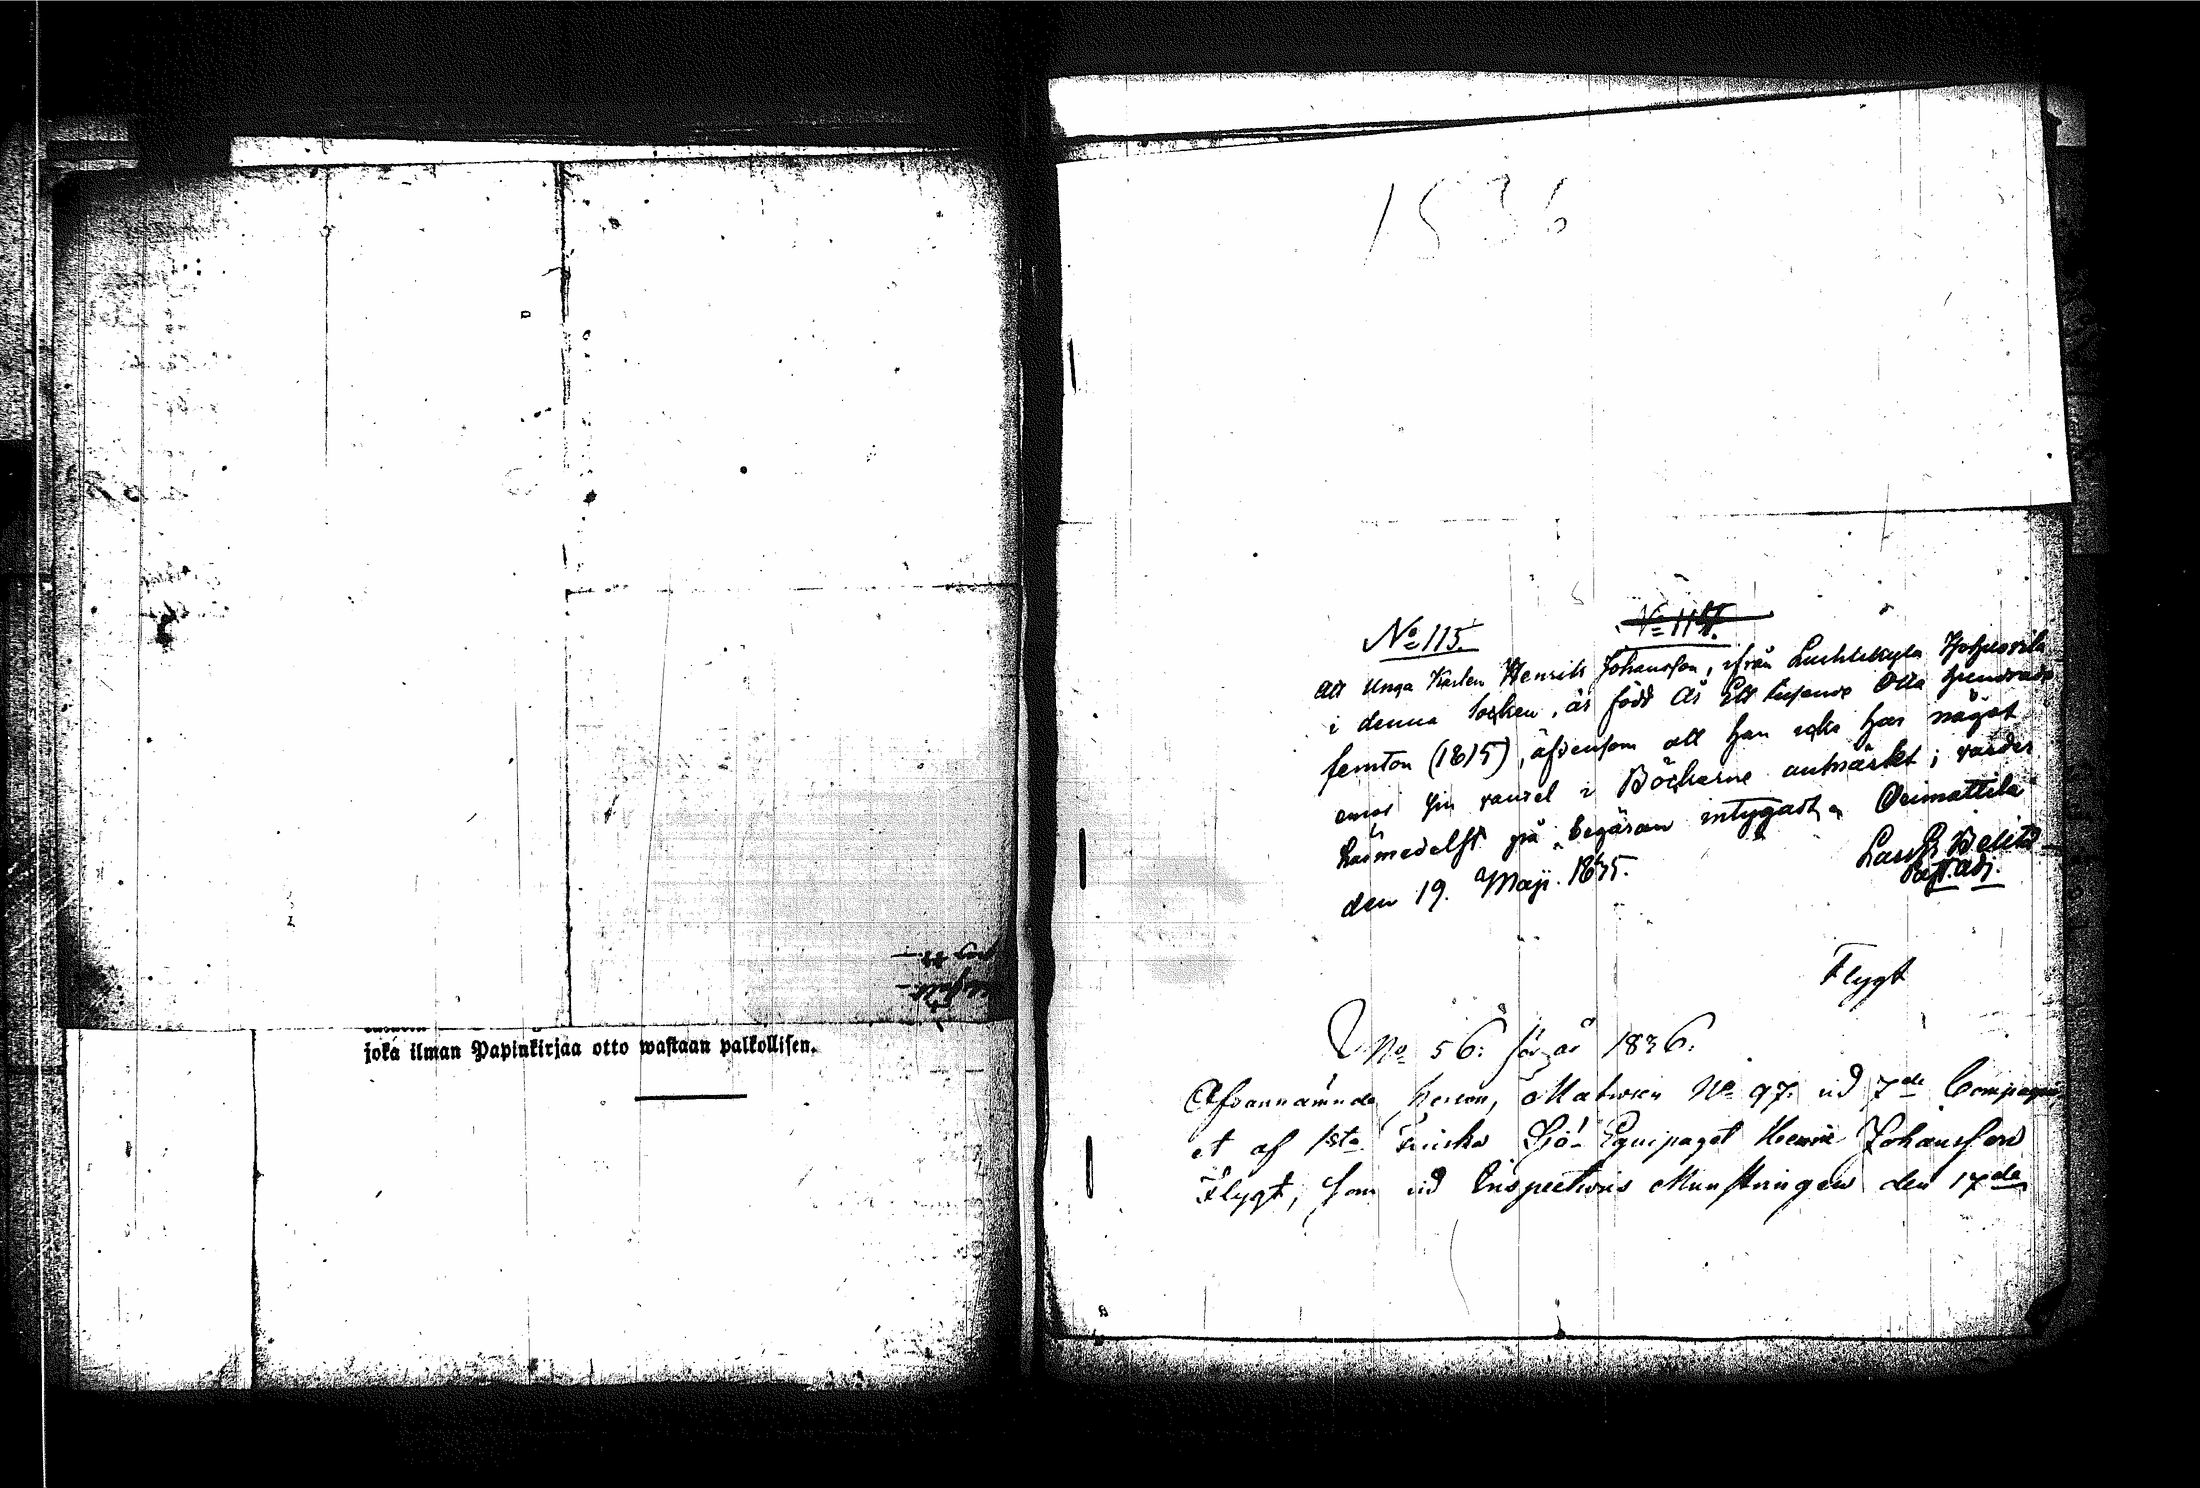 joka ilman Papinkirjaa otto wastaan palkollisen.
1536
No 115.
Att Unga Karlen Henrik Johansson, ifrån Luhtikylä
i denna Socken, är född År Ett tusende Otta hundrade
femton (1815), äfvensom att han icke har något
emot sin vandel i Böckerne antvärkt; varder
härmedelst på begäran intygadt, Orimattila
den 19. Maji. 1835.
Past. adj.
Flygt
No 56: för år 1836.
Ofvannämnde person, Matrosen No 97. vid 7de Compagni
et af 1sta Finska Sjö-Equipaget Henric Johansson
Flygt, som vid Inspections Munstringen den 17de